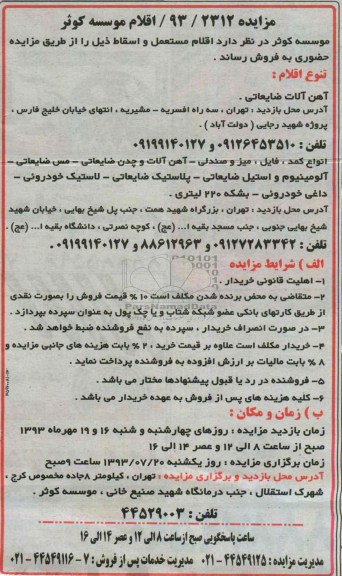 مزایده ۲۳۱۲ / ۹۳ / اقلام موسسه کوثر
موسسه کوثر در نظر دارد اقلام مستعمل و اسقاط ذیل را از طریق مزایده
حضوری به فروش رساند .
تنوع اقلام :
آهن آلات ضایعاتی .
آدرس محل بازدید : تهران ، سه راه افسریه - مشیریه ، انتهای خیابان خلیج فارس ،
پروژه شهید رجایی ( دولت آباد ) .
تلفن : ۰۹۱۲۶۴۵۳۵۱۰ و ۰۹۱۹۹۱۴۰۱۲۷
انواع کمد ، فایل ، میز و صندلی - آهن آلات و چدن ضایعاتی - مس ضایعاتی -
آلومینیوم و استیل ضایعاتی - پلاستیک ضایعاتی - لاستیک خودرونی -
داغی خودرونی - بشکه ۲۲۰ لیتری .
آدرس محل بازدید : تهران ، بزرگراه شهید همت ، جنب پل شیخ بهایی ، خیابان شهید
شیخ بهایی جنوبی ، جنب مسجد بقیه ا... (عج) ، کوچه نصرتی ، دانشگاه بقیه ا... (عج) .
تلفن : ۰۹۱۲۷۲۸۳۳۴۲ و ۸۸۶۱۲۹۶۳ و ۰۹۱۹۹۱۴۰۱۲۷ .
الف ) شرایط مزایده
۱- اهلیت قانونی خریدار .
۲- متقاضی به محض برنده شدن مکلف است ۱۰ % قیمت فروش را بصورت نقدی
از طریق کارتهای بانکی عضو شبکه شتاب و یا چک پول به عنوان سپرده بپردازد .
۳- در صورت انصراف خریدار ، سپرده به نفع فروشنده ضبط خواهد شد .
۴- خریدار مکلف است علاوه بر قیمت خرید ، ۲ % بابت هزینه های جانبی مزایده و
۸ % بابت مالیات بر ارزش افزوده به فروشنده پرداخت نماید .
۵- فروشنده در رد یا قبول پیشنهادها مختار می باشد .
۶- کلیه هزینه های پس از فروش به عهده خریدار می باشد .
ب ) زمان و مکان :
زمان بازدید مزایده : روزهای چهارشنبه و شنبه ۱۶ و ۱۹ مهرماه ۱۳۹۳
صبح از ساعت ۸ الی ۱۲ و عصر ۱۴ الی ۱۶
زمان برگزاری مزایده : روز یکشنبه ۱۳۹۳/۰۷/۲۰ ساعت ۹صبح
آدرس محل بازدید و برگزاری مزایده : تهران ، کیلومتر ۸جاده مخصوص کرج ،
شهرک استقلال ، جنب درمانگاه شهید صنیع خانی ، موسسه کوثر .
تلفن : ۴۴۵۲۹۰۰۳
ساعت پاسخگویی صبح از ساعت ۸ الی ۱۲ و عصر ۱۴ الی ۱۶
مدیریت مزایده : ۴۴۵۴۹۱۲۵ - ۰۲۱ مدیریت خدمات پس از فروش : ۷ - ۴۴۵۴۹۱۱۶ - ۰۲۱